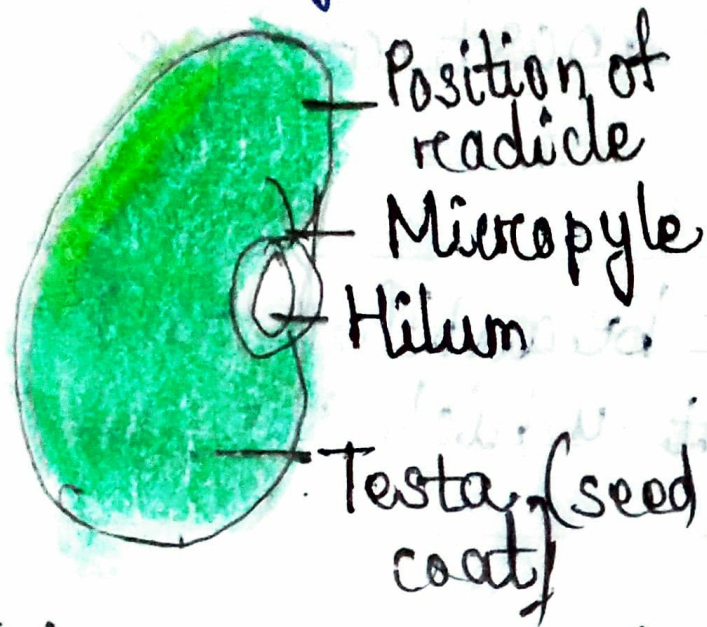 Position of
readicle
Micropyle
Hilum
Testa, (seed
coat)